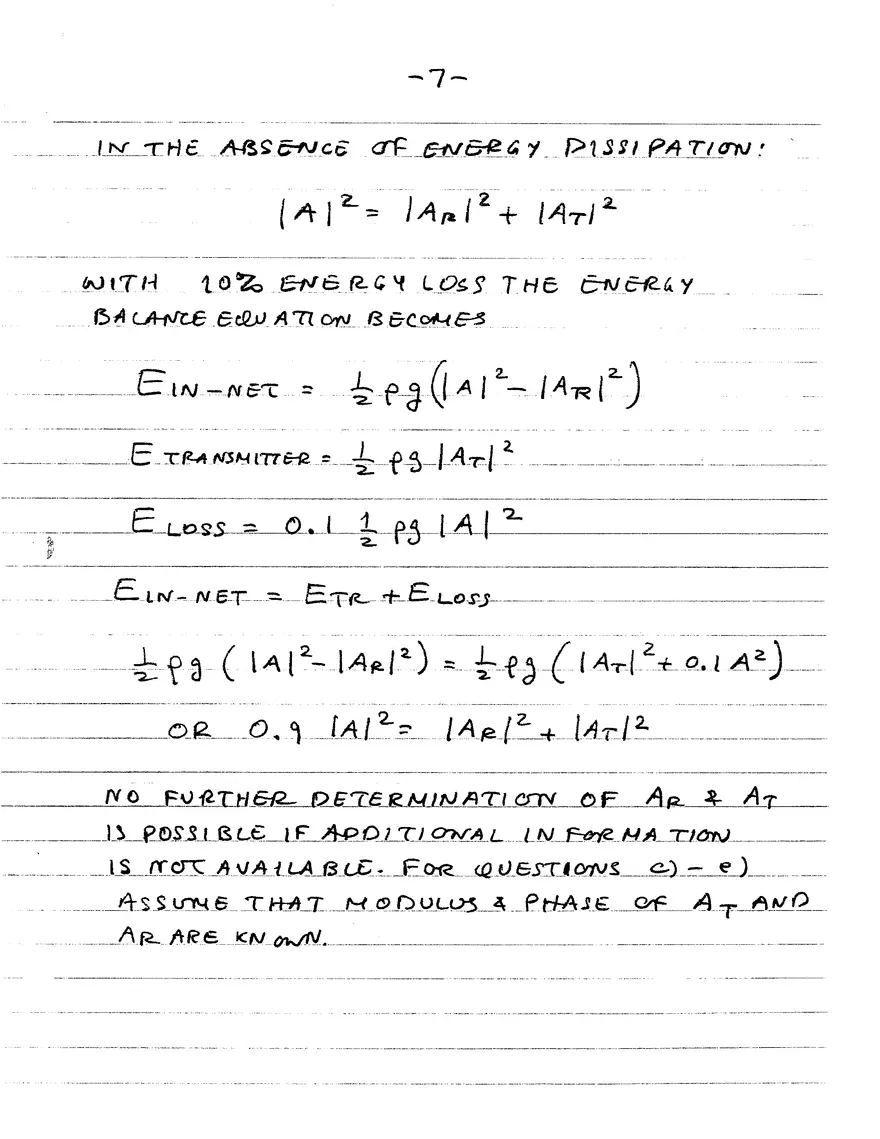 -7-
IN THE ABSENCE OF ENERGY DISSIPATION:
|A|² = |A_R|² + |A_T|²
WITH 10% ENERGY LOSS THE ENERGY
BALANCE EQUATION BECOMES
E_IN-NET = 1/2 ρg(|A|² - |A_R|²)
E_TRANSMITTER = 1/2 ρg |A_T|²
E_LOSS = 0.1 1/2 ρg |A|²
E_IN-NET = E_TR + E_LOSS
1/2 ρg (|A|² - |A_R|²) = 1/2 ρg (|A_T|² + 0.1 A²)
OR 0.9 |A|² = |A_R|² + |A_T|²
NO FURTHER DETERMINATION OF A_R & A_T
IS POSSIBLE IF ADDITIONAL INFORMATION
IS NOT AVAILABLE. FOR QUESTIONS c) - e)
ASSUME THAT MODULUS & PHASE OF A_T AND
A_R ARE KNOWN.